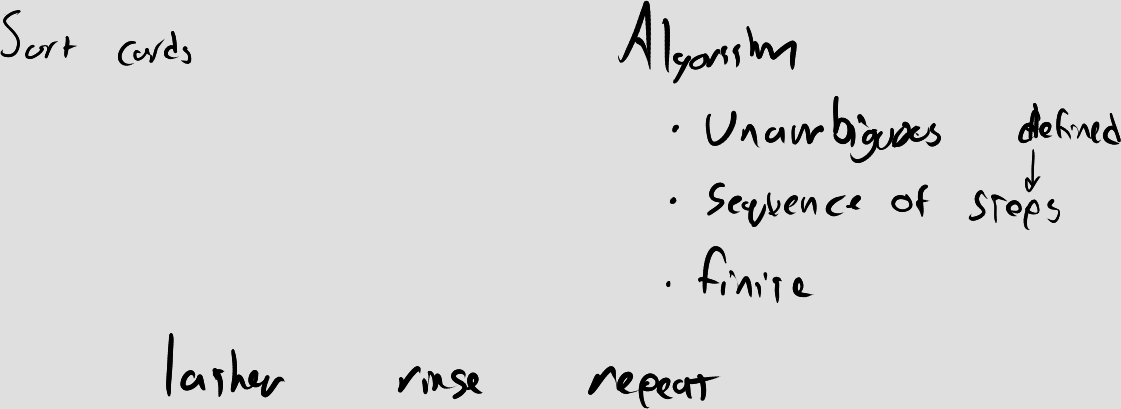 Sort cards
Algorithm
• Unambiguous defined
↓
• Sequence of steps
• finite
lather rinse repeat